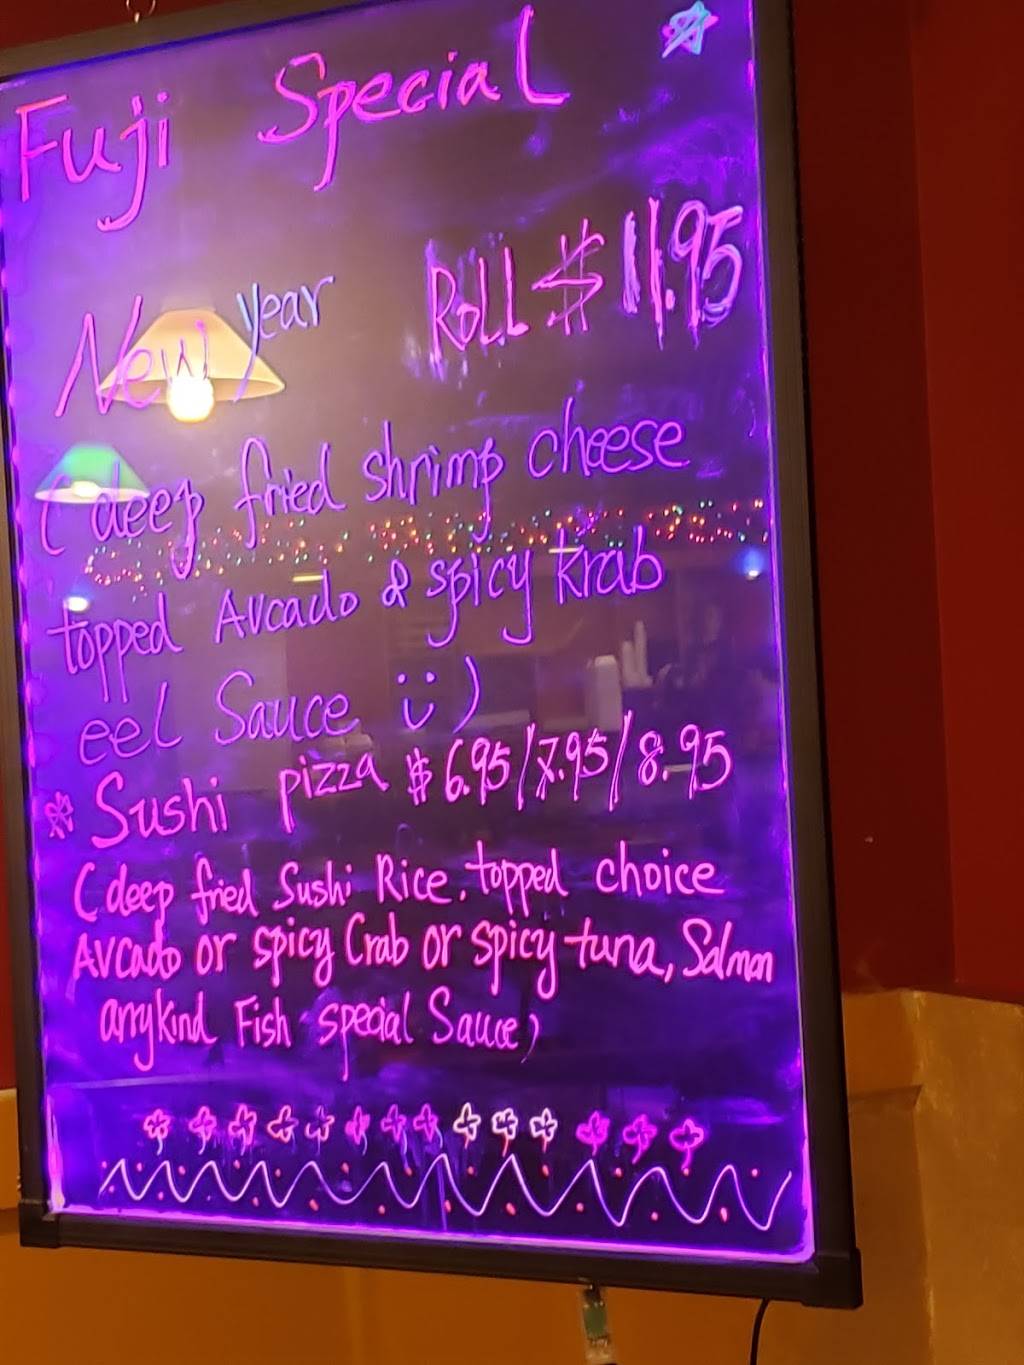 Fuji Special
New year Roll $11.95
(deep fried shrimp cheese
topped Avcado & spicy krab
eel Sauce ü)
Sushi pizza $6.95/7.95/8.95
(deep fried Sushi Rice. topped choice
Avcado or spicy Crab or spicy tuna, Salmon
anykind Fish special Sauce)